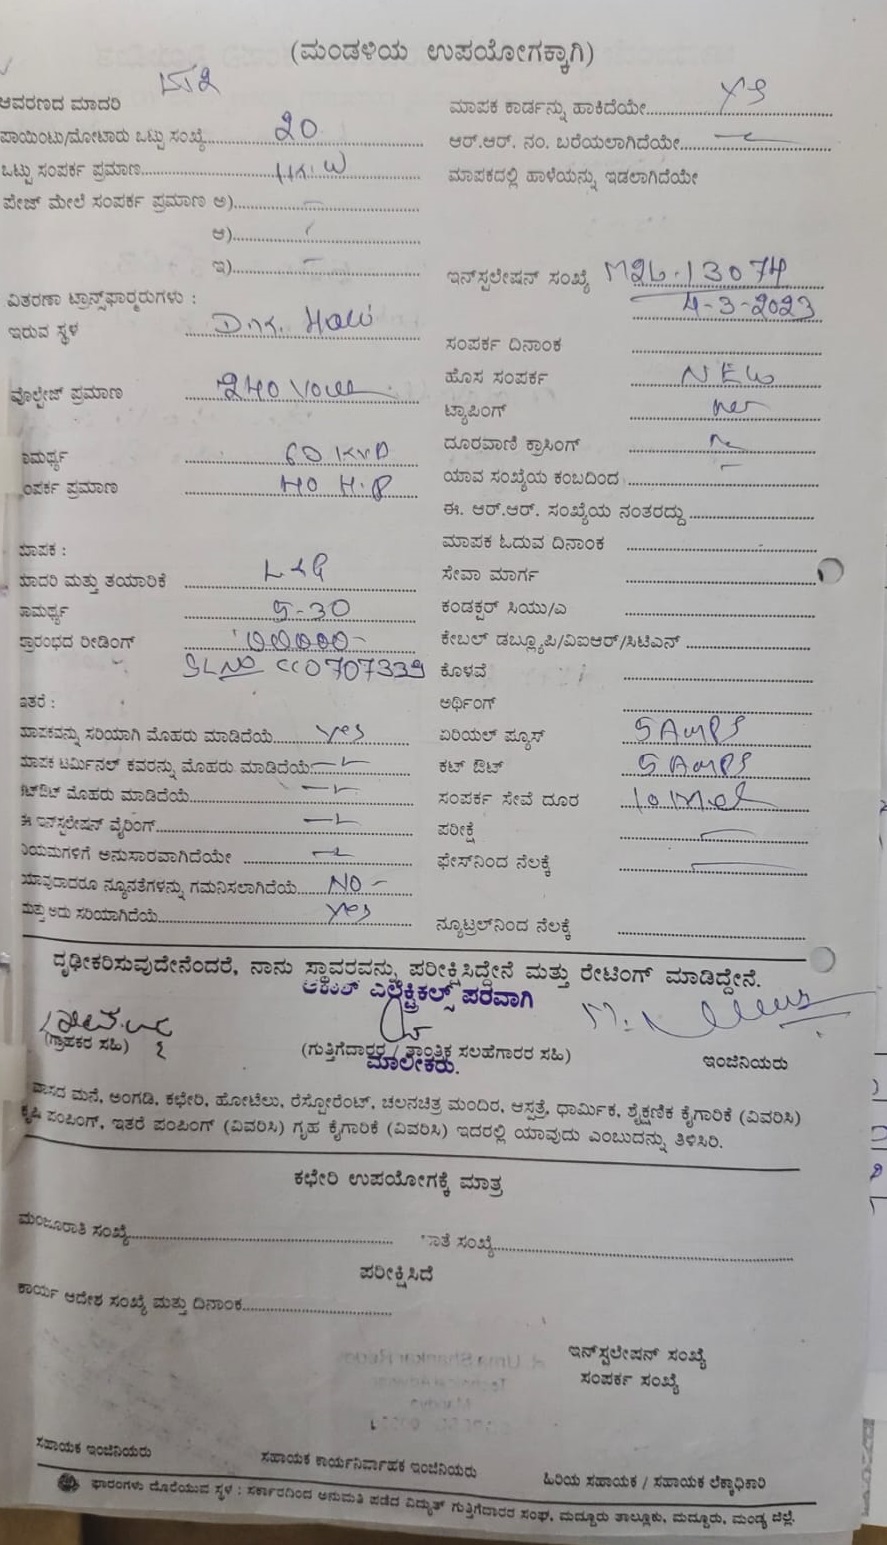 (ಮಂಡಳಿಯ ಉಪಯೋಗಕ್ಕಾಗಿ)
ಆವರಣದ ಮಾದರಿ
ಮಾಪಕ ಕಾರ್ಡನ್ನು ಹಾಕಿದೆಯೇ
ಪಾಯಿಂಟು/ಮೋಟಾರು ಒಟ್ಟು ಸಂಖ್ಯೆ 20
ಆರ್.ಆರ್. ನಂ. ಬರೆಯಲಾಗಿದೆಯೇ
ಒಟ್ಟು ಸಂಪರ್ಕ ಪ್ರಮಾಣ
ಮಾಪಕದಲ್ಲಿ ಹಾಳೆಯನ್ನು ಇಡಲಾಗಿದೆಯೇ
ಪೇಜ್ ಮೇಲೆ ಸಂಪರ್ಕ ಪ್ರಮಾಣ ಅ)
ಆ)
ಇ)
ಇನ್‌ಸ್ಟಲೇಷನ್ ಸಂಖ್ಯೆ M26.13074
4-3-2023
ವಿತರಣಾ ಟ್ರಾನ್ಸ್‌ಫಾರ್ಮರುಗಳು :
ಇರುವ ಸ್ಥಳ
ಸಂಪರ್ಕ ದಿನಾಂಕ
ಹೊಸ ಸಂಪರ್ಕ NEW
ವೊಲ್ಟೇಜ್ ಪ್ರಮಾಣ 240
ಟ್ಯಾಪಿಂಗ್
ದೂರವಾಣಿ ಕ್ರಾಸಿಂಗ್
ಾಮರ್ಥ್ಯ
ಯಾವ ಸಂಖ್ಯೆಯ ಕಂಬದಿಂದ
ಂಪರ್ಕ ಪ್ರಮಾಣ 40 H.P
ಈ. ಆರ್.ಆರ್. ಸಂಖ್ಯೆಯ ನಂತರದ್ದು
ಮಾಪಕ ಓದುವ ದಿನಾಂಕ
ಮಾಪಕ :
ಮಾದರಿ ಮತ್ತು ತಯಾರಿಕೆ L&G
ಸೇವಾ ಮಾರ್ಗ
ಾಮರ್ಥ್ಯ 5-30
ಕಂಡಕ್ಟರ್ ಸಿಯು/ಎ
ಪ್ರಾರಂಭದ ರೀಡಿಂಗ್ 00000
ಕೇಬಲ್ ಡಬ್ಲ್ಯೂಪಿ/ವಿಐಆರ್/ಸಿಟಿಎಸ್
SL NO CC0707339
ಕೊಳವೆ
ಇತರೆ :
ಅರ್ಥಿಂಗ್
ಮಾಪಕವನ್ನು ಸರಿಯಾಗಿ ಮೊಹರು ಮಾಡಿದೆಯೆ Yes
ಏರಿಯಲ್ ಫ್ಯೂಸ್ 5 Amps
ಮಾಪಕ ಟರ್ಮಿನಲ್ ಕವರನ್ನು ಮೊಹರು ಮಾಡಿದೆಯೆ
ಕಟ್ ಔಟ್ 5 Amps
ಕಟ್‌ಔಟ್ ಮೊಹರು ಮಾಡಿದೆಯೆ
ಸಂಪರ್ಕ ಸೇವೆ ದೂರ
ಈ ಇನ್‌ಸ್ಟಲೇಷನ್ ವೈರಿಂಗ್
ಪರೀಕ್ಷೆ
ನಿಯಮಗಳಿಗೆ ಅನುಸಾರವಾಗಿದೆಯೇ
ಫೇಸ್‌ನಿಂದ ನೆಲಕ್ಕೆ
ಯಾವುದಾದರೂ ನ್ಯೂನತೆಗಳನ್ನು ಗಮನಿಸಲಾಗಿದೆಯೆ NO -
ಮತ್ತು ಅದು ಸರಿಯಾಗಿದೆಯೆ Yes
ನ್ಯೂಟ್ರಲ್‌ನಿಂದ ನೆಲಕ್ಕೆ
ದೃಢೀಕರಿಸುವುದೇನೆಂದರೆ, ನಾನು ಸ್ಥಾವರವನ್ನು ಪರೀಕ್ಷಿಸಿದ್ದೇನೆ ಮತ್ತು ರೇಟಿಂಗ್ ಮಾಡಿದ್ದೇನೆ.
ಎಲೆಕ್ಟ್ರಿಕಲ್ಸ್ ಪರವಾಗಿ
(ಗ್ರಾಹಕರ ಸಹಿ)
(ಗುತ್ತಿಗೆದಾರರ / ತಾಂತ್ರಿಕ ಸಲಹೆಗಾರರ ಸಹಿ)
ಇಂಜಿನಿಯರು
ಮಾಲೀಕರು.
ವಾಸದ ಮನೆ, ಅಂಗಡಿ, ಕಛೇರಿ, ಹೋಟೆಲು, ರೆಸ್ಟೋರೆಂಟ್, ಚಲನಚಿತ್ರ ಮಂದಿರ, ಆಸ್ಪತ್ರೆ, ಧಾರ್ಮಿಕ, ಶೈಕ್ಷಣಿಕ ಕೈಗಾರಿಕೆ (ವಿವರಿಸಿ)
ಕೃಷಿ ಪಂಪಿಂಗ್, ಇತರೆ ಪಂಪಿಂಗ್ (ವಿವರಿಸಿ) ಗೃಹ ಕೈಗಾರಿಕೆ (ವಿವರಿಸಿ) ಇದರಲ್ಲಿ ಯಾವುದು ಎಂಬುದನ್ನು ತಿಳಿಸಿರಿ.
ಕಛೇರಿ ಉಪಯೋಗಕ್ಕೆ ಮಾತ್ರ
ಮಂಜೂರಾತಿ ಸಂಖ್ಯೆ
ಾತೆ ಸಂಖ್ಯೆ
ಪರೀಕ್ಷಿಸಿದೆ
ಕಾರ್ಯ ಆದೇಶ ಸಂಖ್ಯೆ ಮತ್ತು ದಿನಾಂಕ
ಇನ್‌ಸ್ಟಲೇಷನ್ ಸಂಖ್ಯೆ
ಸಂಪರ್ಕ ಸಂಖ್ಯೆ
ಸಹಾಯಕ ಇಂಜಿನಿಯರು
ಸಹಾಯಕ ಕಾರ್ಯನಿರ್ವಾಹಕ ಇಂಜಿನಿಯರು
ಹಿರಿಯ ಸಹಾಯಕ / ಸಹಾಯಕ ಲೆಕ್ಕಾಧಿಕಾರಿ
ಫಾರಂಗಳು ದೊರೆಯುವ ಸ್ಥಳ : ಸರ್ಕಾರದಿಂದ ಅನುಮತಿ ಪಡೆದ ವಿದ್ಯುತ್ ಗುತ್ತಿಗೆದಾರರ ಸಂಘ, ಮದ್ದೂರು ತಾಲ್ಲೂಕು, ಮದ್ದೂರು, ಮಂಡ್ಯ ಜಿಲ್ಲೆ.